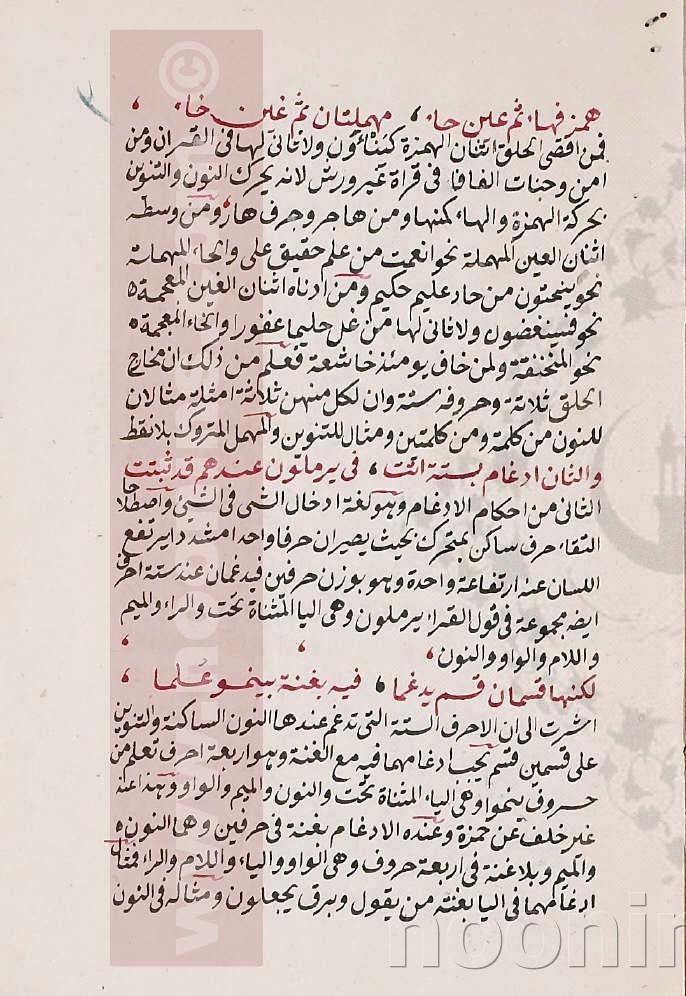 همز فهاء ثم عين حاء ، مهملتان ثم غين خاء ،
فمن اقصى الحلق اثنان الهمزة كينأون ولا ثانى لها فى القران ومن
امن وجنات الفافا فى قراة غير ورش لانه يحرك النون والتنوين
بحركة الهمزة والهاء كمنها ومن هاجر وجرف هار ومن وسطه
اثنان العين المهملة نحو انعمت من علم حقيق على والحاء المهملة
نحو ينحتون من حاد عليم حكيم ومن ادناه اثنان الغين المعجمة
نحو فسينغضون ولا ثانى لها من غل حليما غفورا والخاء المعجمة
نحو المنخنقة ولمن خاف يومئذ خاشعة فعلم من ذلك ان مخارج
الحلق ثلاثة وحروفه ستة وان لكل منهن ثلاثة امثلة مثالان
للنون من كلمة ومن كلمتين ومثال للتنوين والمهمل المتروك بلا نقط
والثان ادغام بستة اتت ، فى يرملون عندهم قد ثبتت
الثانى من احكام الادغام وهو لغة ادخال الشى فى الشئ واصطلاحا
التقاء حرف ساكن بمتحرك بحيث يصيران حرفا واحدا مشددا يرتفع
اللسان عنه ارتفاعة واحدة وهو بوزن حرفين فيدغمان عند ستة احرف
ايضه مجموعة فى قول القراء يرملون وهى اليا المثناة تحت والراء والميم
واللام والواو والنون
لكنها قسمان قسم يدغما ، فيه بغنة بينمو علما ،
اشرت الى ان الاحرف الستة التى تدغم عندها النون الساكنة والتنوين
على قسمين قسم يجب ادغامهما فيه مع الغنة وهو اربعة احرف تعلم من
حروف ينموا وهى الياء المثناة تحت والنون والميم والواو وهذا عند
غير خلف عن حمزة وعنده الادغام بغنة فى حرفين وهى النون
والميم وبلا غنة فى اربعة حروف وهى الواو والياء واللام والراء فمثال
ادغامهما فى اليا بغنة من يقول وبرق يجعلون ومثاله فى النون
www.noorlib.ir ©
noonin